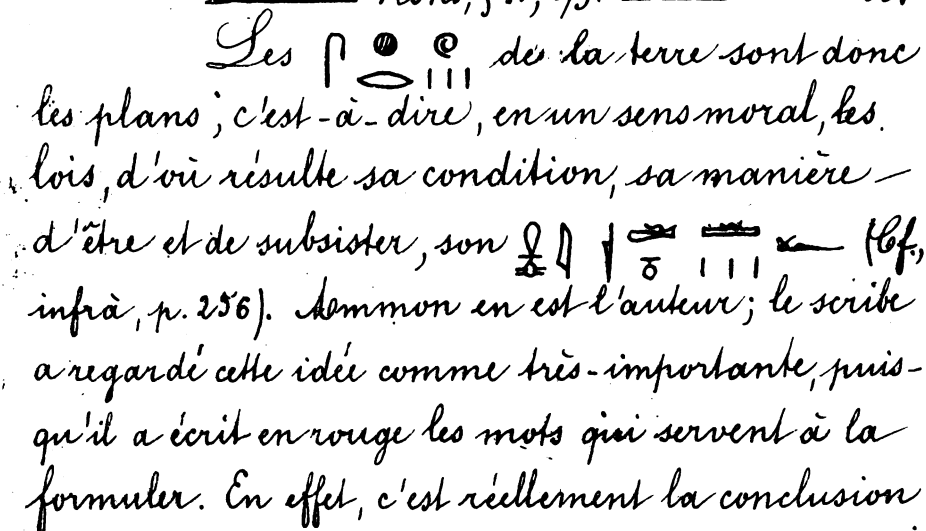 Les 𓋴𓐍𓂋𓏲𓏥 de la terre sont donc
les plans ; c'est-à-dire, en un sens moral, les
lois, d'où résulte sa condition, sa manière
d'être et de subsister, son (Cf.,
infrà, p. 256). Ammon en est l'auteur ; le scribe
a regardé cette idée comme très-importante, puis-
qu'il a écrit en rouge les mots qui servent à la
formuler. En effet, c'est réellement la conclusion